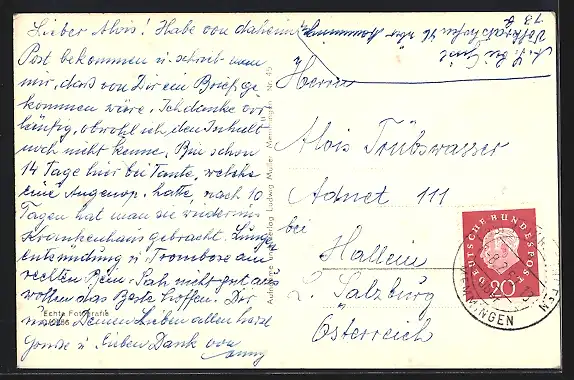 Lieber Alois! Habe von daheim
Post bekommen u. schreibt man
mir, daß von Dir ein Brief ge
kommen wäre. Ich danke vor
läufig, obwohl ich den Inhalt
noch nicht kenne. Bin schon
14 Tage hier bei Tante, welche
eine Augenop. hatte, nach 10
Tagen hat man sie wieder ins
Krankenhaus gebracht. Lungen
entzündung u. Trombose am
rechten Bein. Sah nicht gut aus
wollen das Beste hoffen. Dir
und Deinen Lieben allen herzl
Grüße u. lieben Dank von
Echte Fotografie
Aufnahme und Verlag Ludwig Müller, Memmingen Nr. 45
Herrn
Alois Trübswasser
Adnet 111
bei
Hallein
b. Salzburg
Österreich
DEUTSCHE BUNDESPOST
20
MEMMINGEN